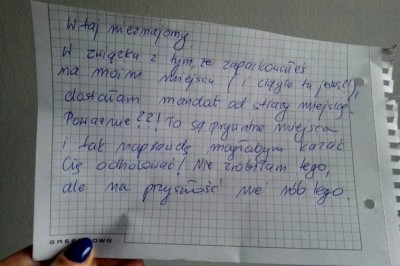 Witaj nieznajomy
W związku z tym, że zaparkowałeś
na moim miejscu (i ciągle tu jesteś),
dostałam mandat od straży miejskiej.
Poważnie??! To są prywatne miejsca
i tak naprawdę mogłabym kazać
Cię odholować! Nie zrobiłam tego,
ale na przyszłość nie rób tego.